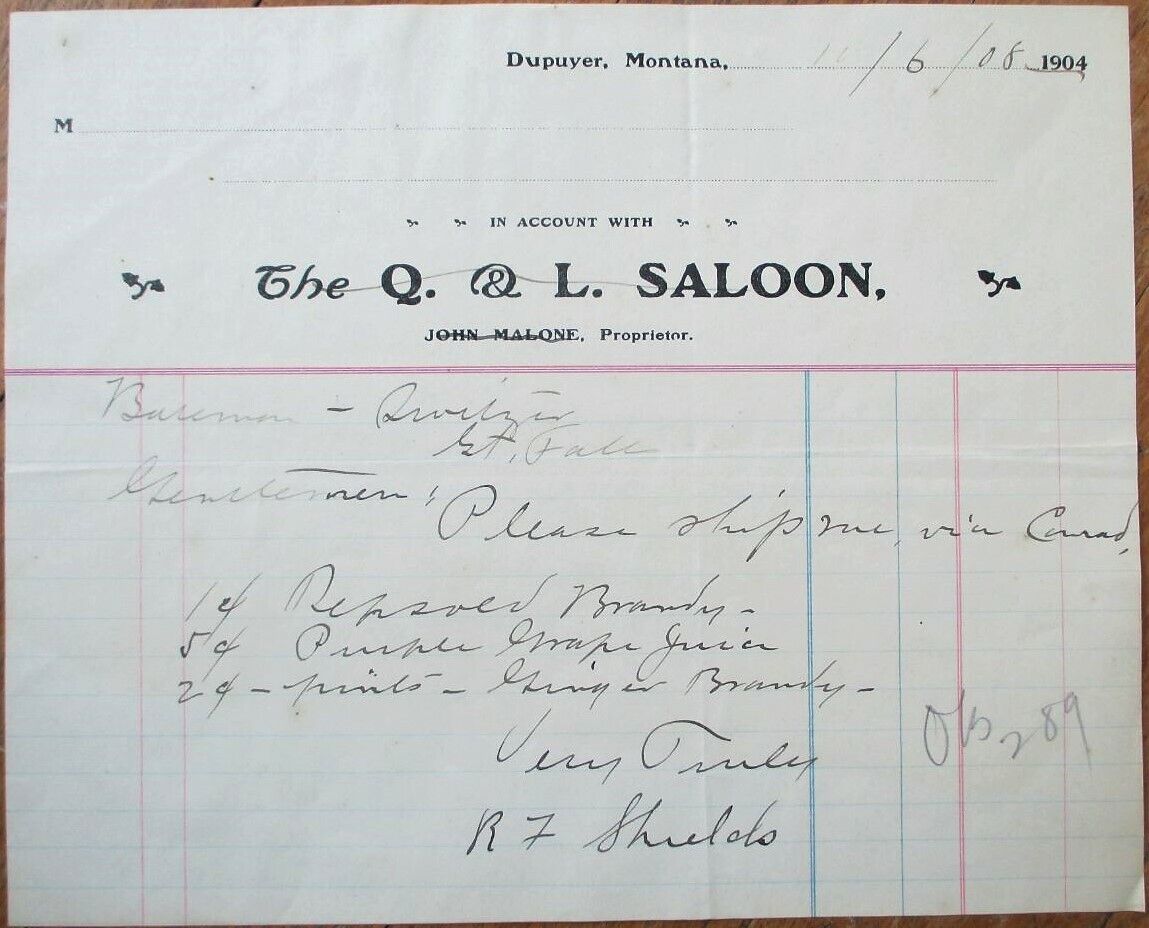 Dupuyer, Montana, 11/6/08 1904
M
IN ACCOUNT WITH
The Q. & L. SALOON,
JOHN MALONE, Proprietor.
- Switzer
Gt. Falls
Gentlemen:
Please ship me, via Conrad,
1 Repsold Brandy -
5 Purple Grape Juice
2 - pints - Ginger Brandy -
Very Truly
R F Shields
89